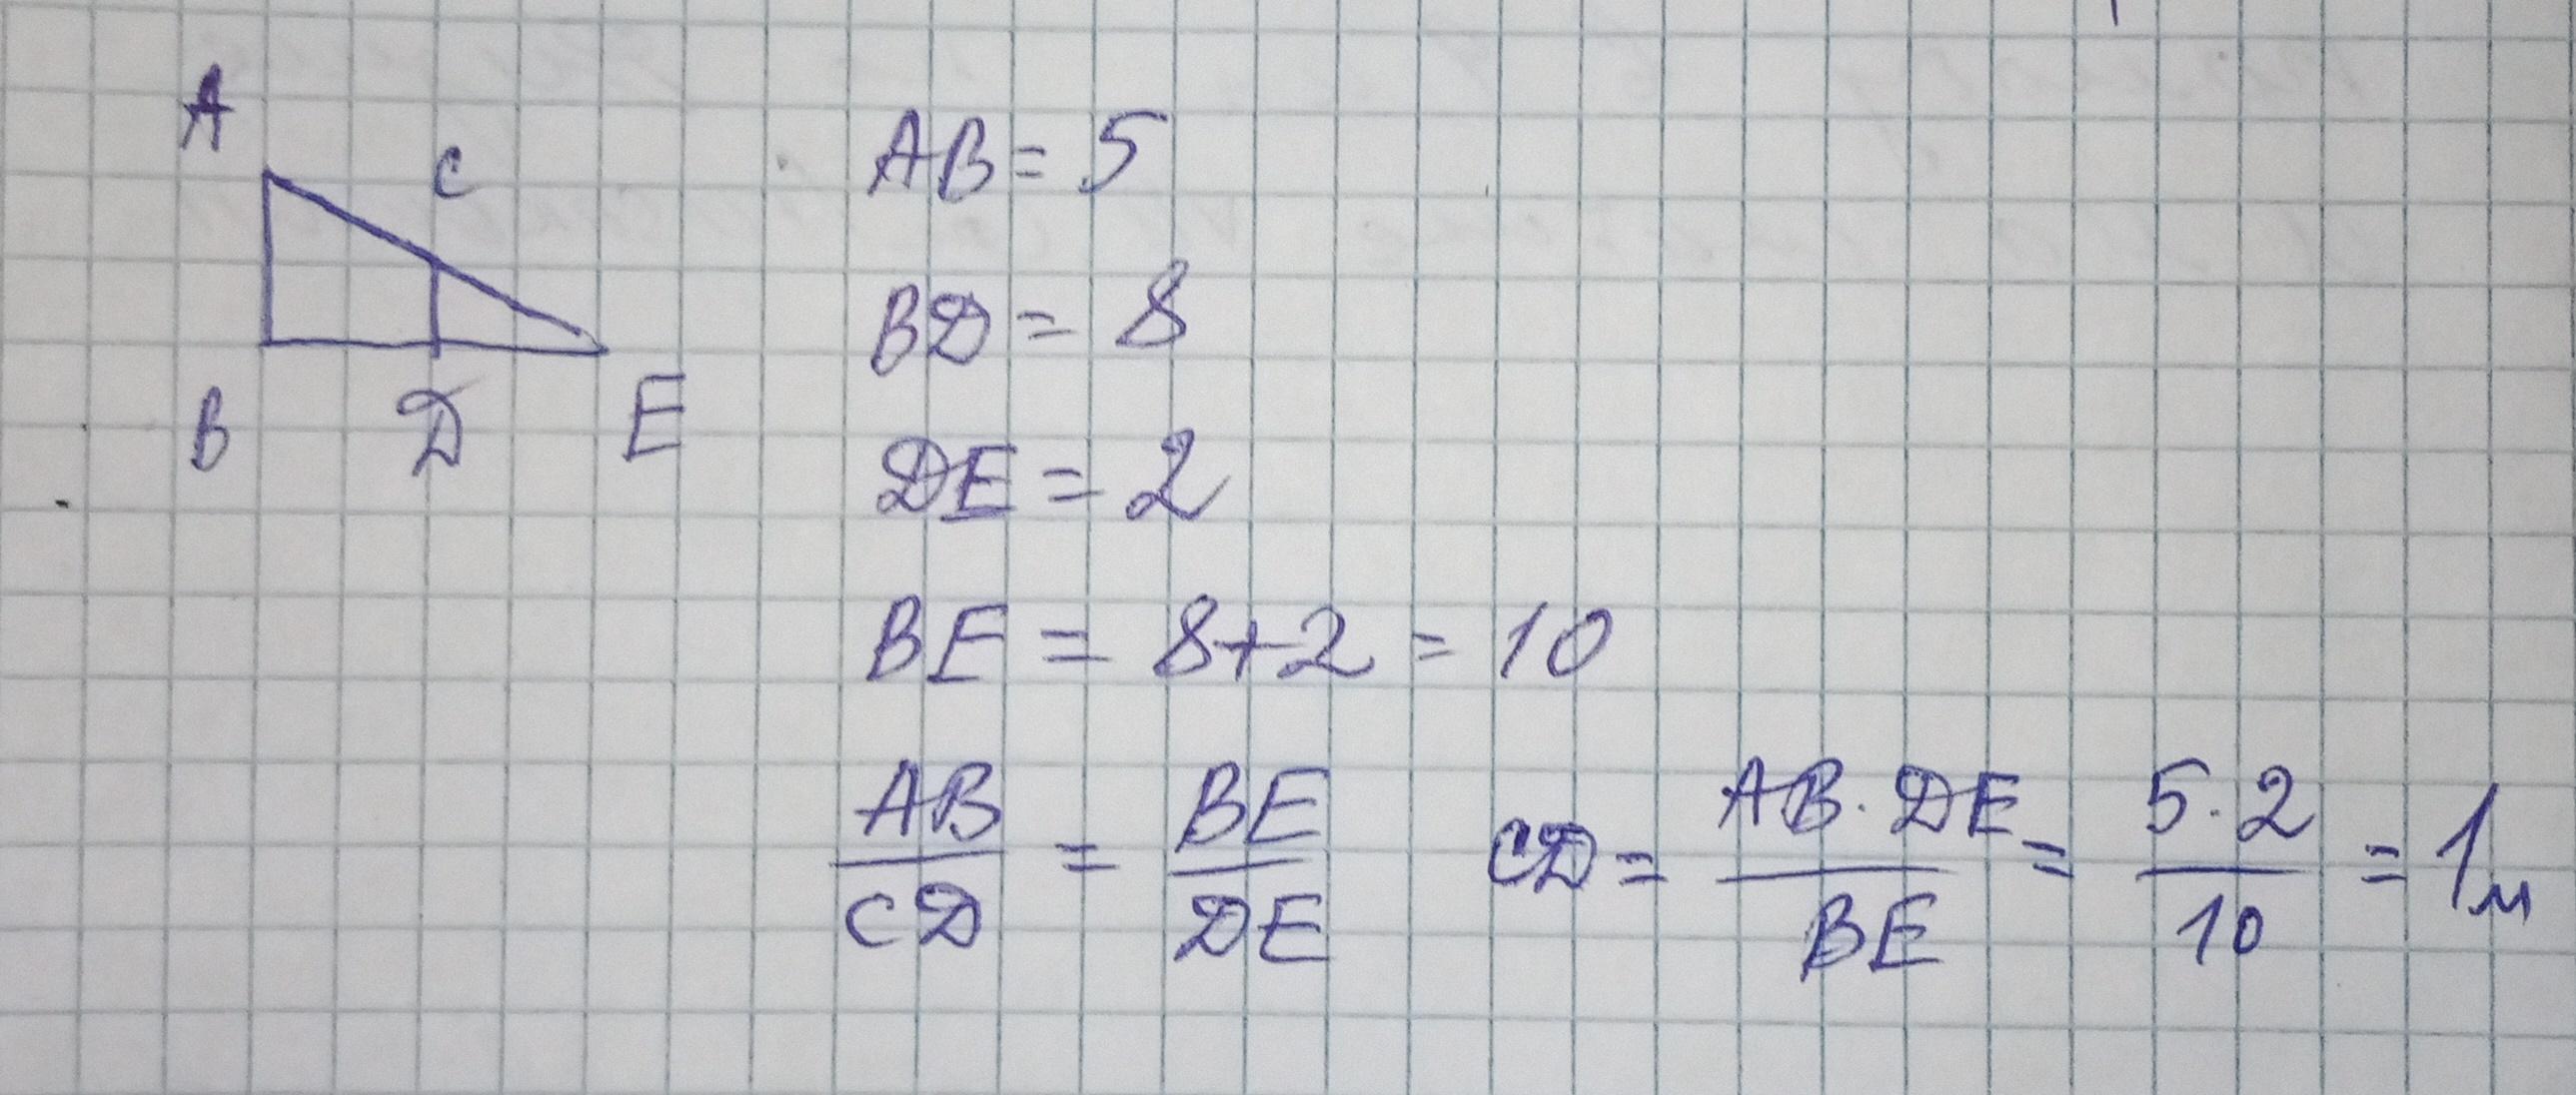 A
C
B D E
AB = 5
BD = 8
DE = 2
BE = 8+2 = 10
AB/CD = BE/DE CD = AB·DE/BE = 5·2/10 = 1м